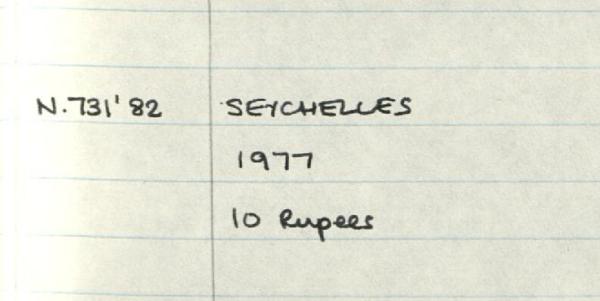 N.731'82 SEYCHELLES
1977
10 Rupees